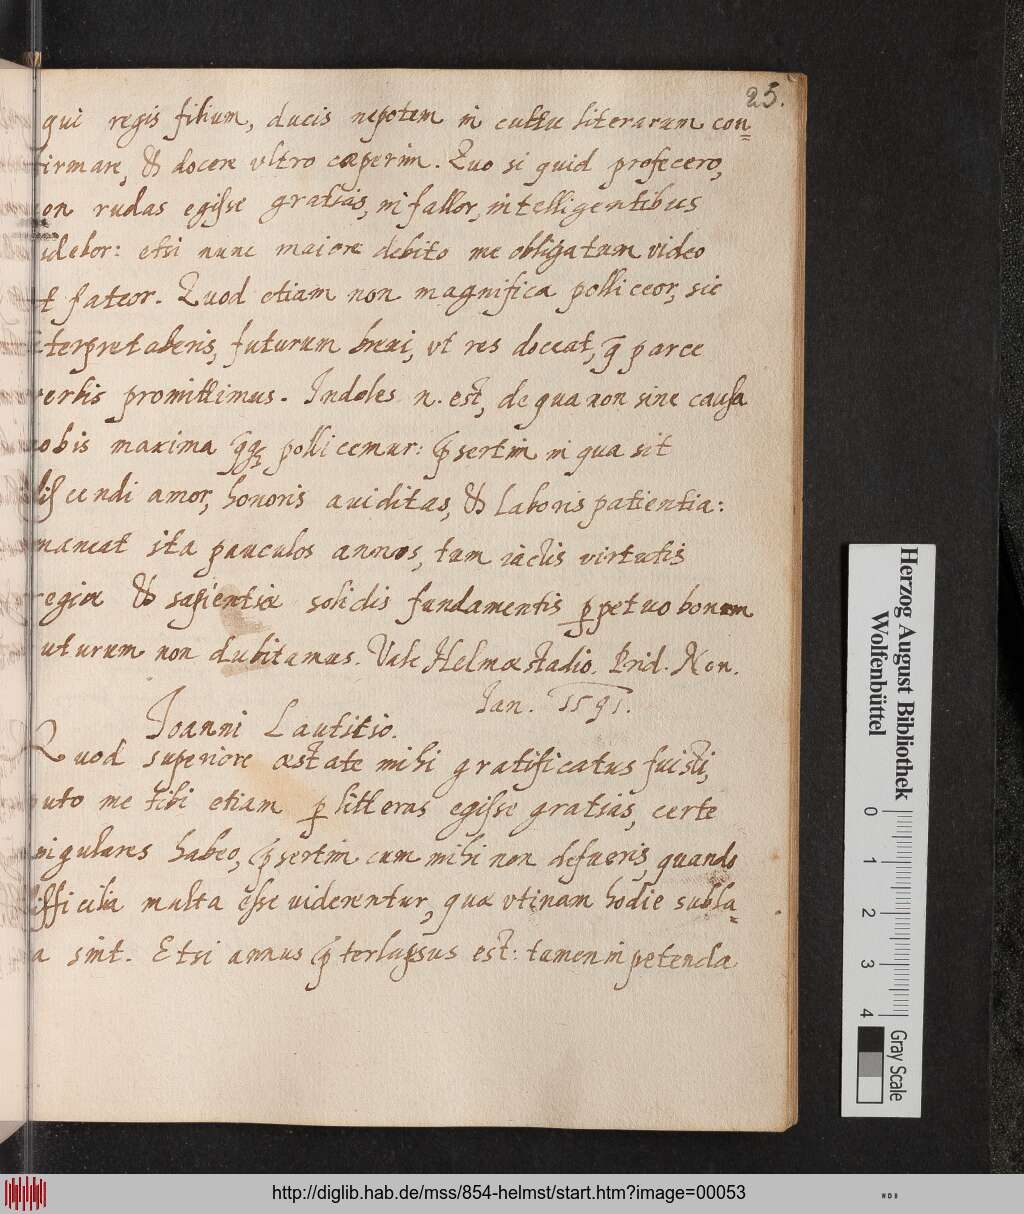 25.
qui regis filium, ducis nepotem in cultu literarum con=
firmare, & docere vltro cœperim. Quo si quid profecero,
on rudas egisse gratias, ni fallor, intelligentibus
idebor: etsi nunc maiore debito me obligatum video
t fateor. Quod etiam non magnifica polliceor, sic
terpretaberis, futurum breui, vt res doceat, q̃ parce
verbis promittimus. Indoles n. est, de qua non sine causa
obis maxima pollicemur: p̃sertim in qua sit
discendi amor, honoris auiditas, & laboris patientia:
maneat ita pauculos annos, tum iactis virtutis
regiæ & sapientiæ solidis fundamentis ꝑpetuo bonum
uturum non dubitamus. Vale Helmæstadio. Prid. Non.
Jan. 1591.
Joanni Lautitio.
Quod superiore æstate mihi gratificatus fuisti,
puto me tibi etiam ꝑ litteras egisse gratias, certe
ingulares habeo, p̃sertim cum mihi non defueris, quando
difficilia multa esse uiderentur, quæ vtinam hodie subla=
a sint. Etsi annus p̃terlapsus est: tamen in petenda
Herzog August Bibliothek
Wolfenbüttel
0 1 2 3 4
Gray Scale
http://diglib.hab.de/mss/854-helmst/start.htm?image=00053